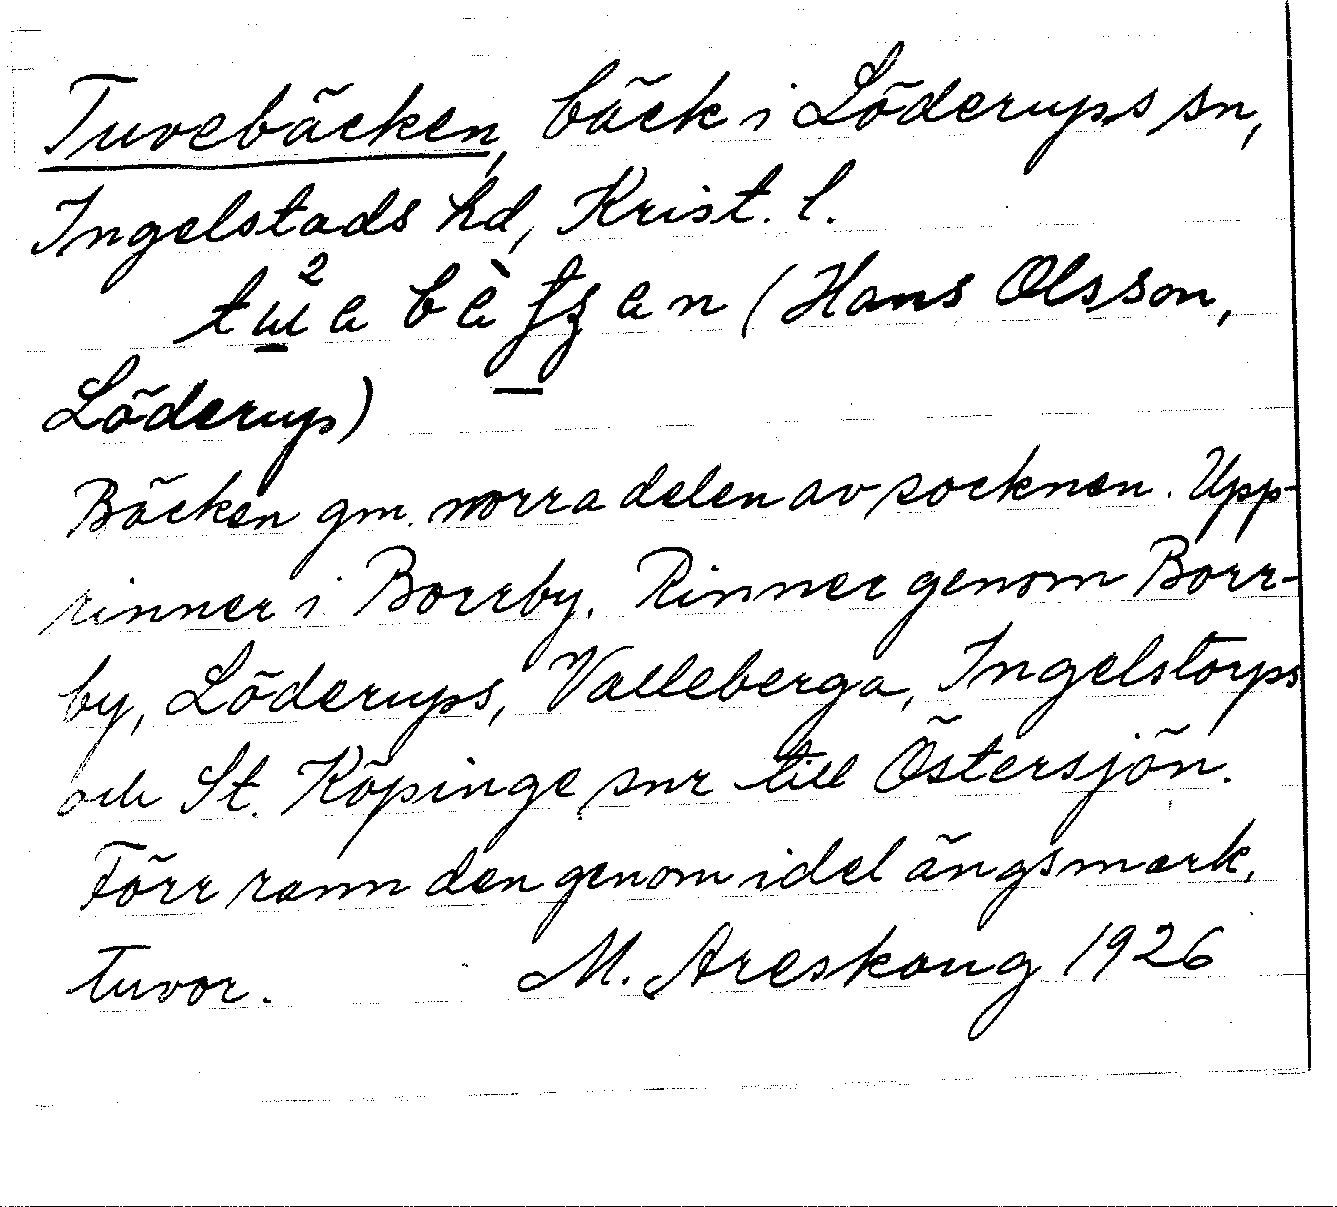 Tuvebäcken, bäck i Löderups sn,
Ingelstads hd, Krist. l.
(Hans Olsson,
Löderup)
Bäcken gm. norra delen av socknen. Upp-
rinner i Borrby. Rinner genom Borr-
by, Löderups, Valleberga, Ingelstorps
och St. Köpinge snr till Östersjön.
Förr rann den genom idel ängsmark,
tuvor. M. Areskoug 1926